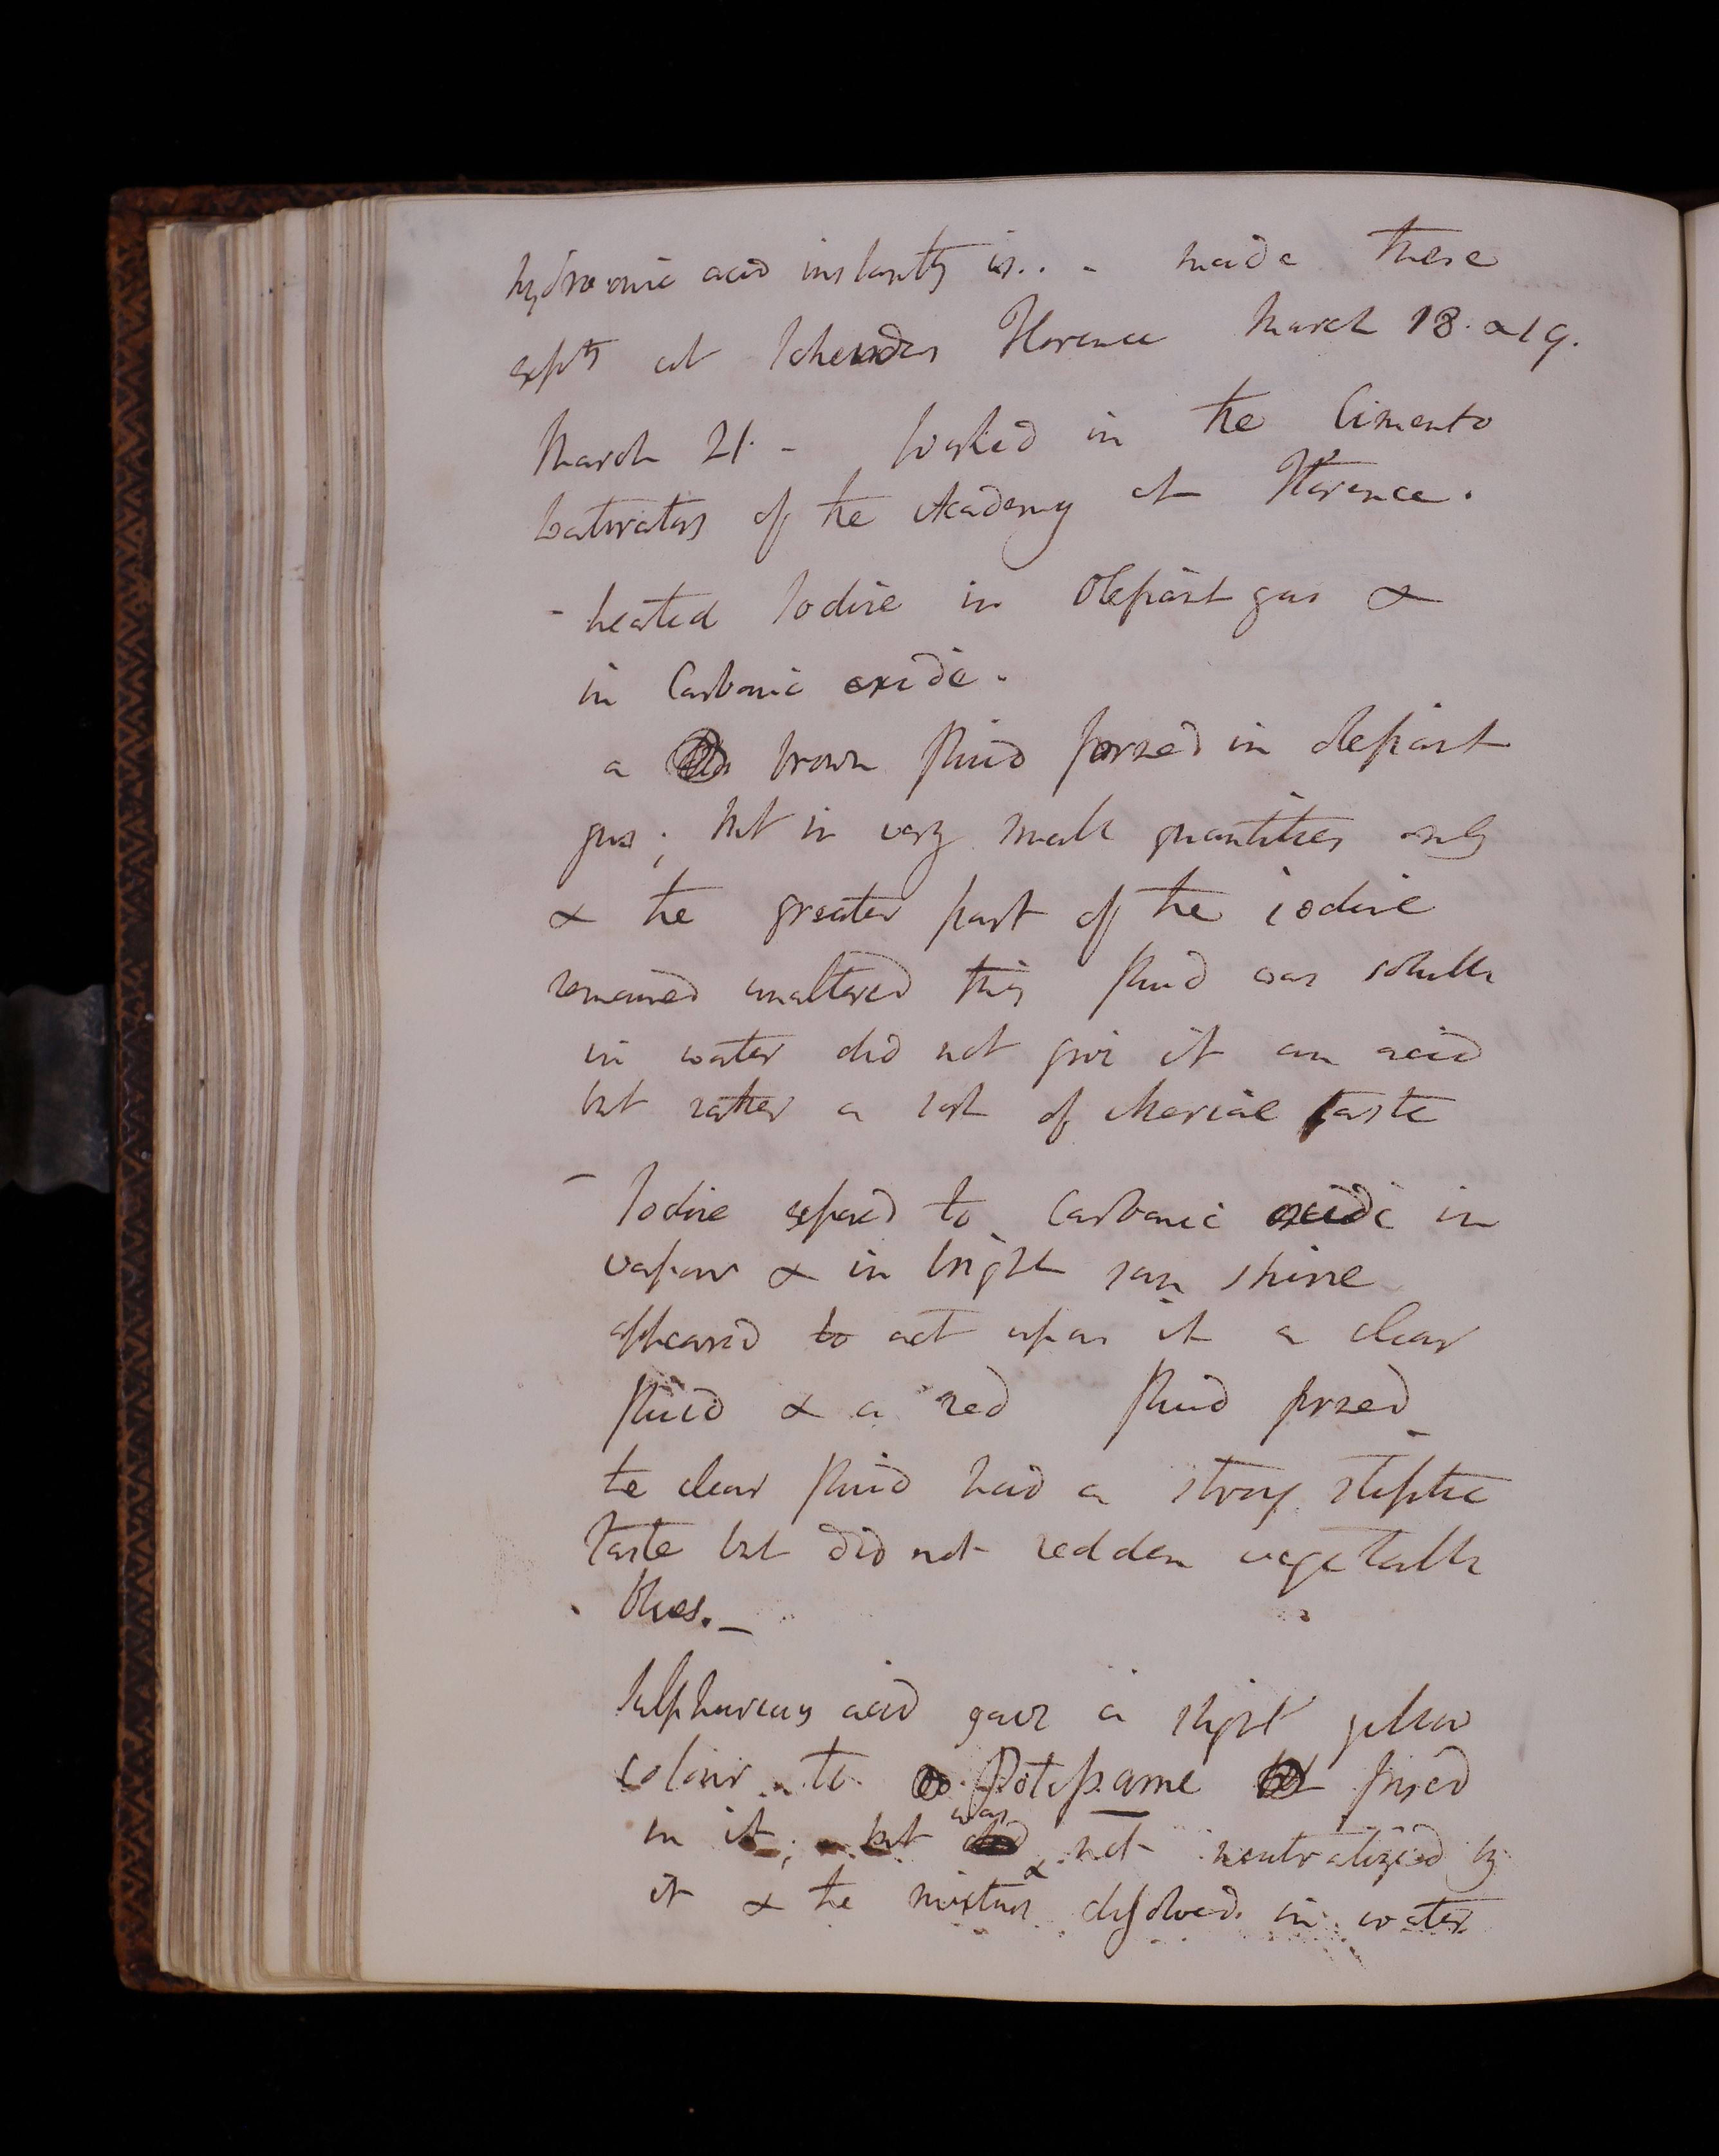 hydroionic acid instantly is.. - made these
expts at Schneiders Florence March 18. & 19.
March 21. - worked in the Cimento
Laboratory of the Academy at Florence.
- heated Iodine in Olefiant gas &
in Carbonic oxide.
a brown fluid formed in olefiant
gas; but in very small quantities only
& the greater part of the iodine
remained unaltered this fluid was soluble
in water did not give it an acid
but rather a sort of etherial taste
- Iodine exposed to Carbonic oxide in
vapour & in bright sun shine
appeared to act upon it a clear
fluid & a red fluid formed
the clear fluid had a strong styptic
taste but did not redden vegetable
blues. -
Sulphureous acid gave a slight yellow
colour to Potassame fused
in it; - but was not neutralized by
it & the mixture & dissolved in water